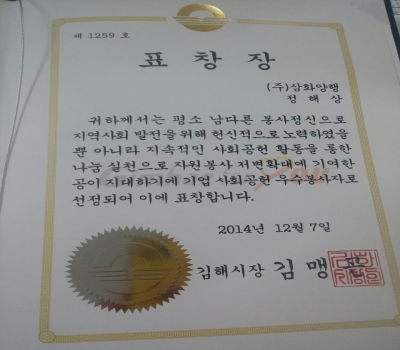 제 1259 호
표 창 장
(주)삼화양행
정 해 상
귀하께서는 평소 남다른 봉사정신으로
지역사회 발전을 위해 헌신적으로 노력하였을
뿐 아니라 지속적인 사회공헌 활동을 통한
나눔 실천으로 자원봉사 저변확대에 기여한
공이 지대하기에 기업 사회공헌 우수봉사자로
선정되어 이에 표창합니다.
2014년 12월 7일
김해시장 김 맹